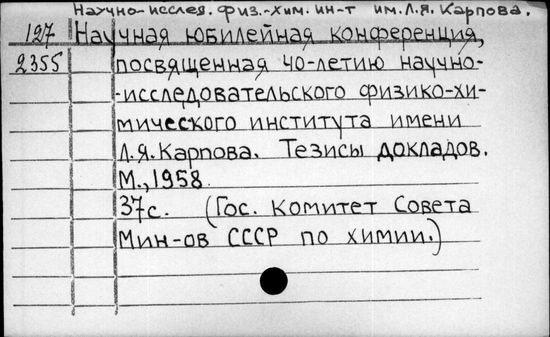 Научно-исслед. физ.-хим. ин-т им. Л.Я. Карпова.
127 Научная юбилейная конференция,
2355 посвященная 40-летию научно-
-исследовательского физико-хи-
мического института имени
Л.Я. Карпова. Тезисы докладов.
М., 1958.
37с. (Гос. Комитет Совета
Мин-ов СССР по химии.)